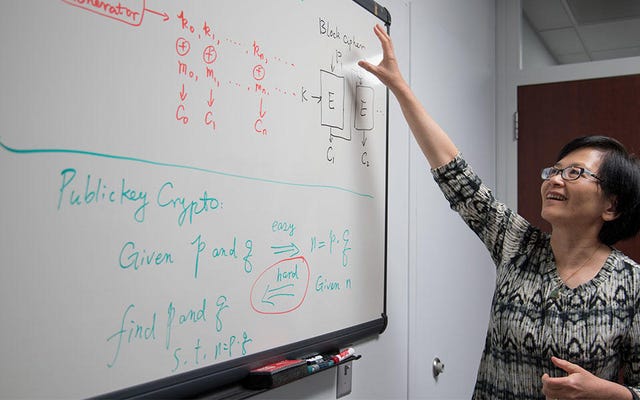 Generator
k₀, k₁, ..... kₙ,
⊕ ⊕ ⊕
m₀, m₁, ..... mₙ, ...
C₀ C₁ Cₙ
Block cipher
P
K → E E ...
C₁ C₂
Publickey Crypto:
Given p and q easy ⇒ n = p · q
hard ⇐ Given n
find p and q
s. t. n = p · q